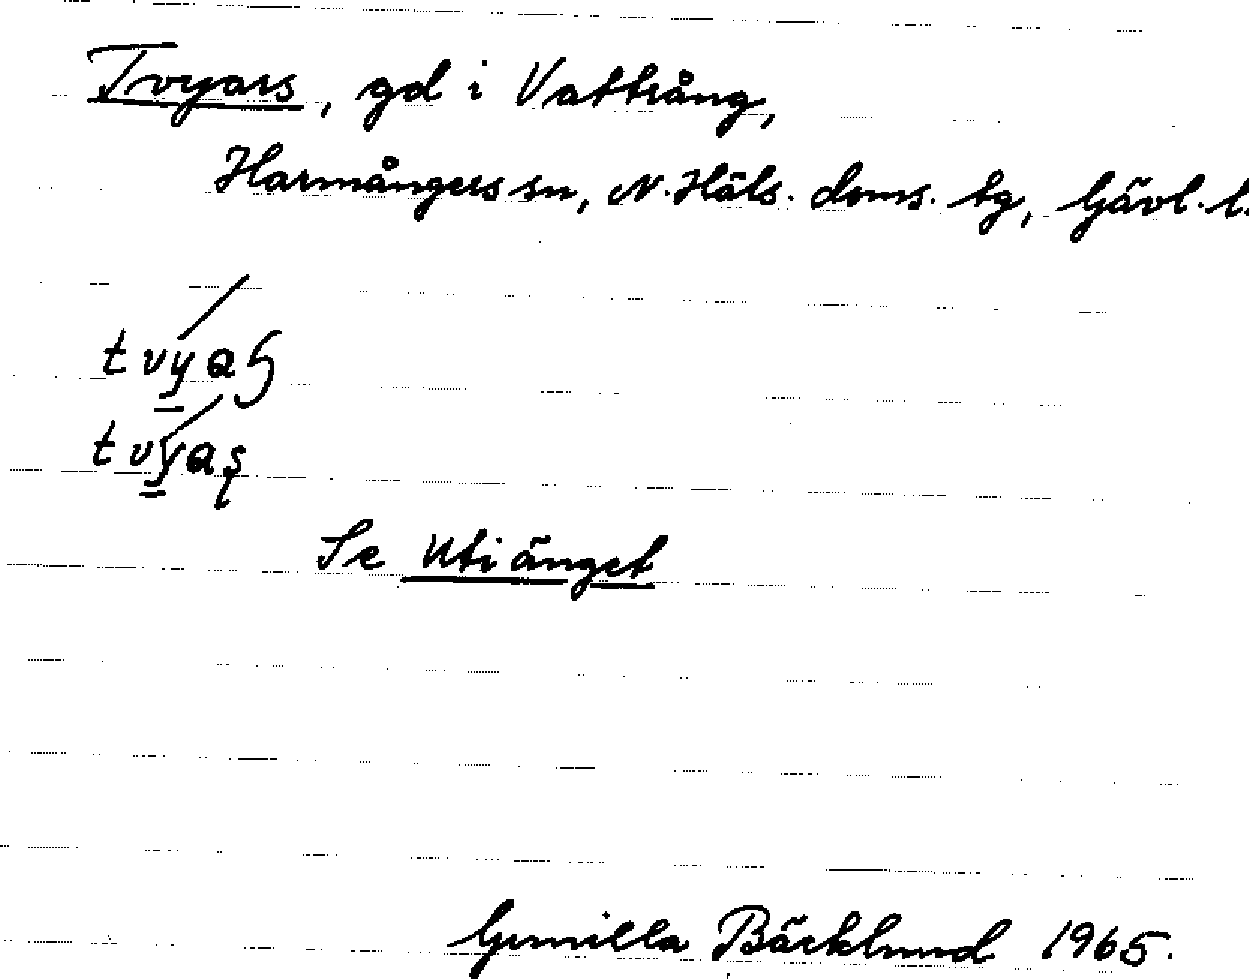 Tvyars, gd i Vattrång,
Harmångers sn, N. Häls. doms. tg, Gävl. l.
Se Utiänget
Gunilla Bäcklund 1965.